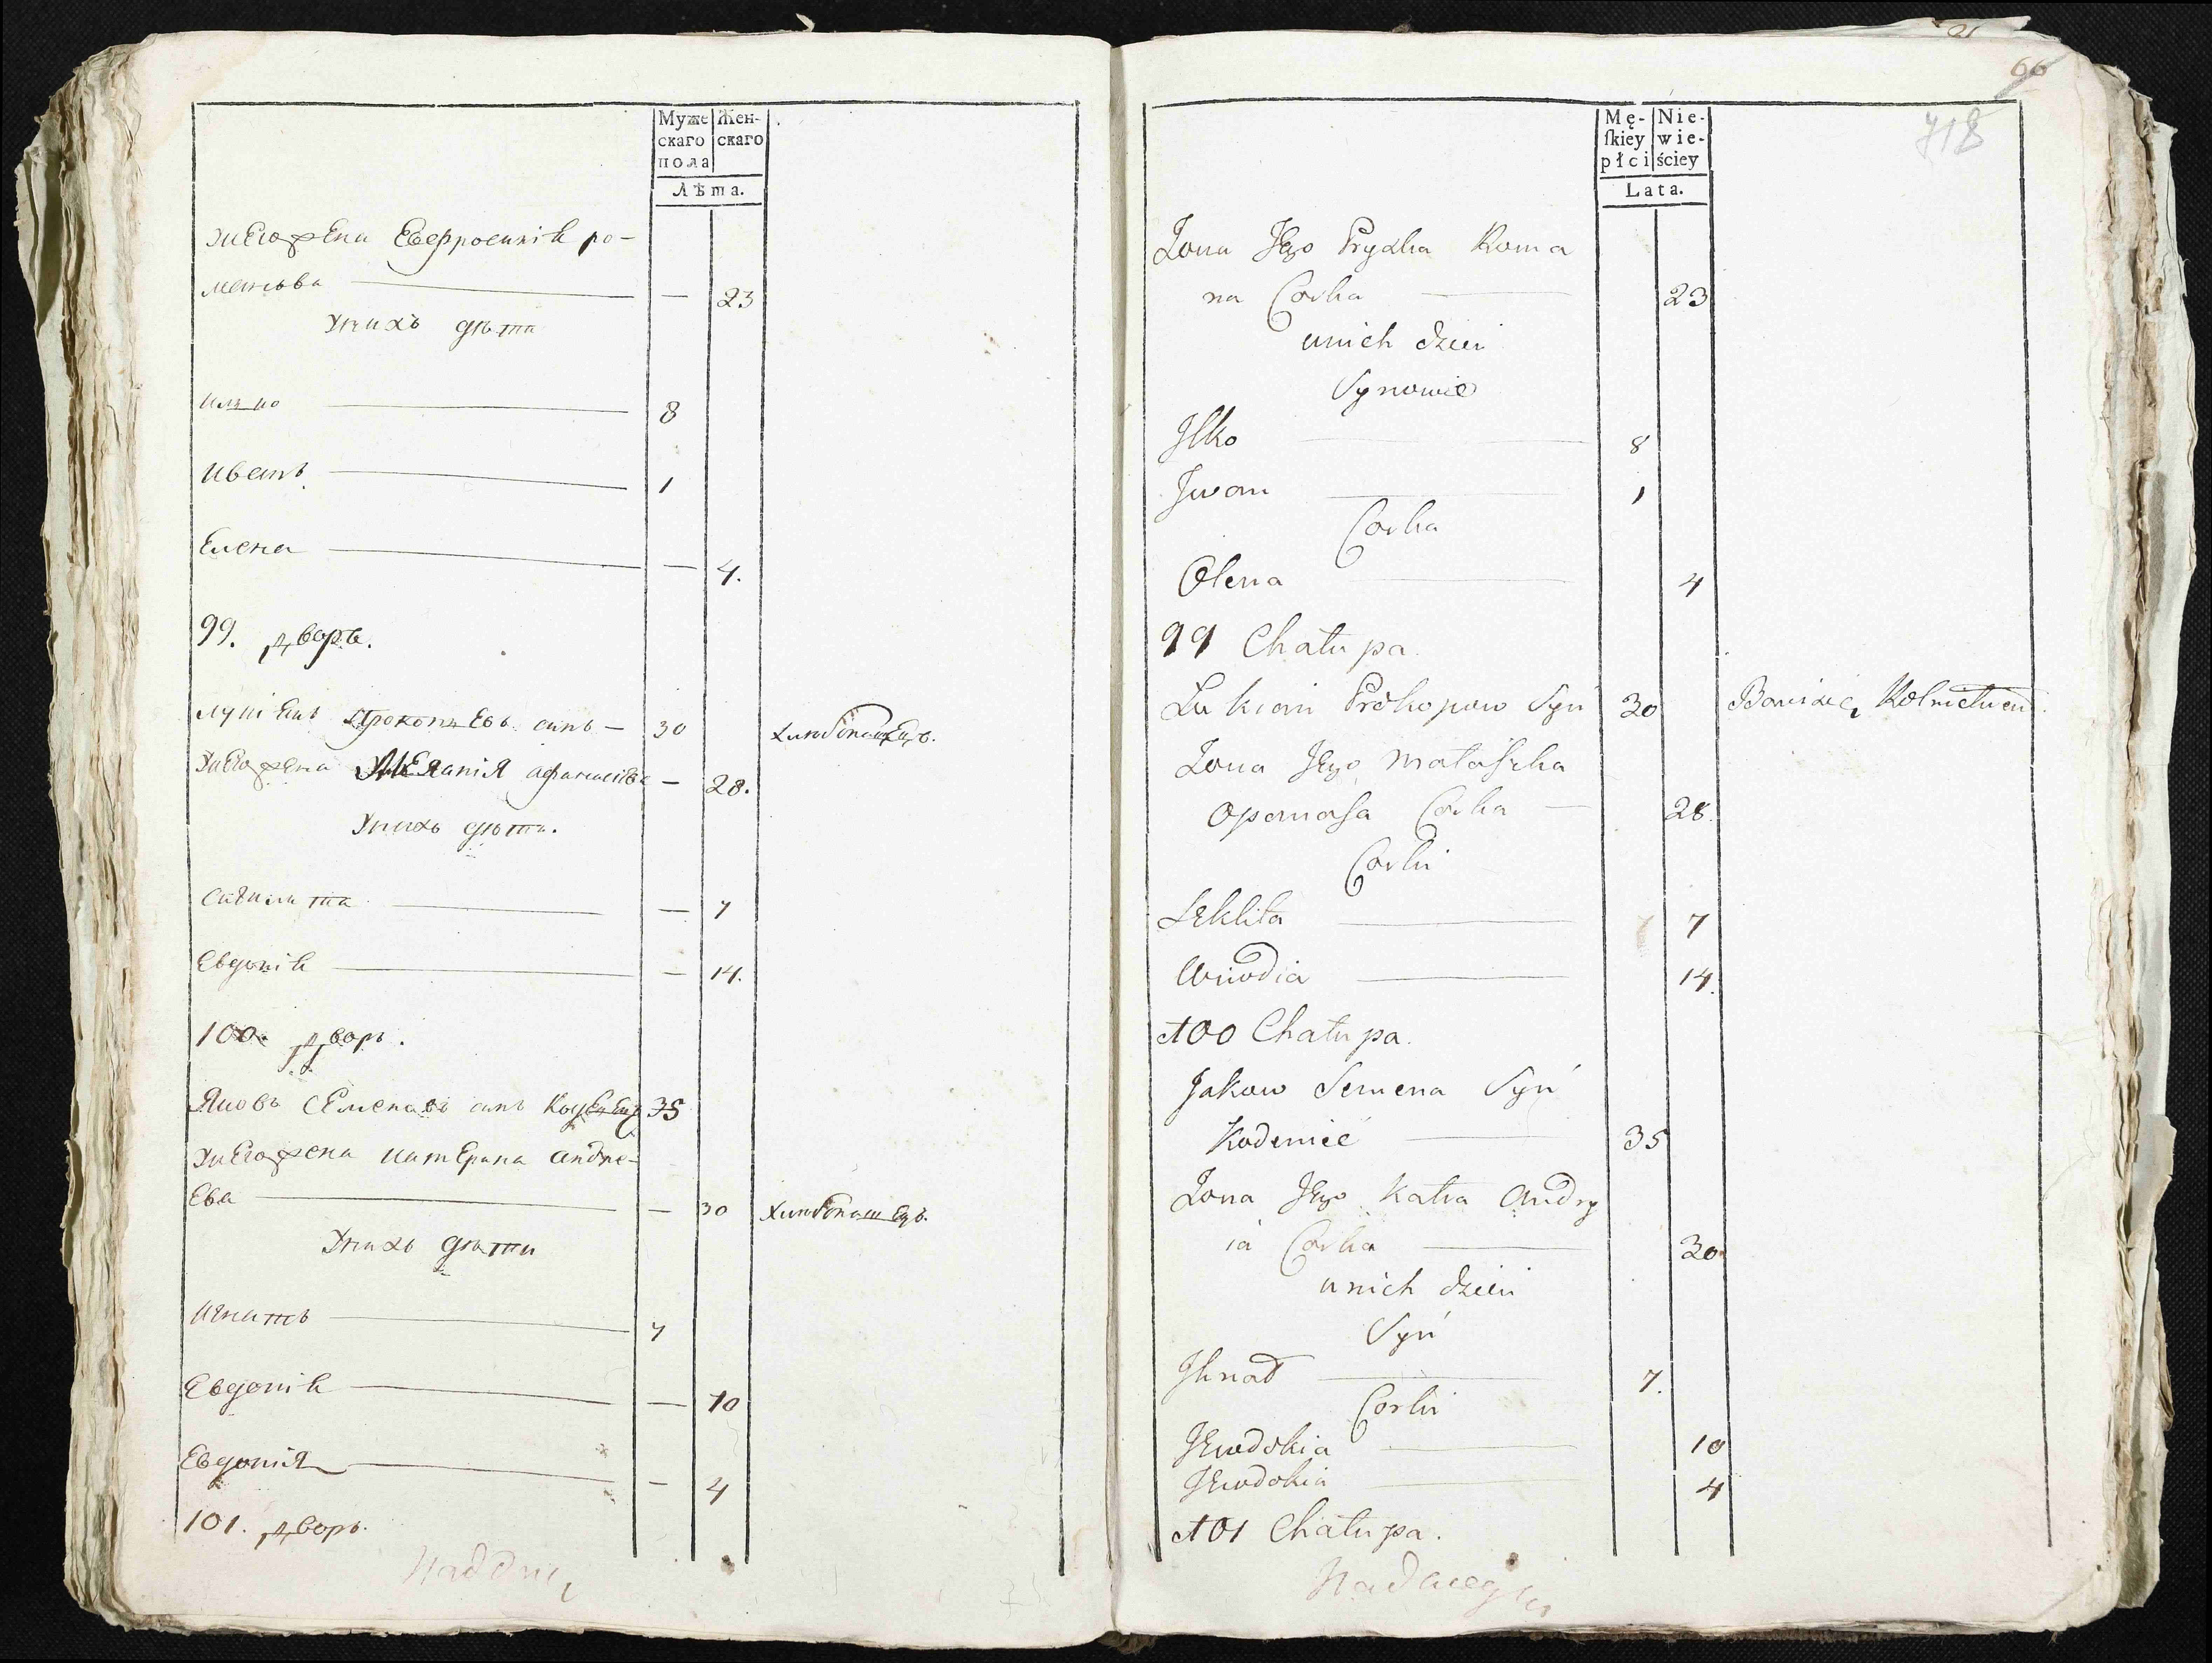 Муже Жен-
скаго скаго
пола
Лѣта.
Уего жена Евфросинія ро-
манова — 23
У нихъ дѣти
Илько 8
Иванъ 1
Елена — 4.
99. дворъ.
Лукіянъ Прокопьевъ сынъ — 30 хлибопашецъ.
Уего жена Меланія афанасіева — 28.
У нихъ дѣти.
— 7
Евдокія — 14.
100. дворъ.
Яковъ Семеновъ сынъ 35
Уего жена Катерина андре-
Ева — 30 хлибопашецъ.
У нихъ дѣти
Игнатъ 7
Евдокія — 10
Евдокія — 4
101. дворъ.
66
718
Mę- Nie-
ſkiey wie-
płci ściey
Lata.
Zona Jego Pryzka Roma
na Corka 23
u nich dzieci
Synowie
Jlko 8
Jwan 1
Corka
Olena 4
99 Chałupa.
Lukian Prokopow Syn 30 Bawiący Rolnictwem.
Zona Jego Małaszka
Opanasa Corka — 28.
Corki
Teklita 7
Owdodia 14.
100 Chałupa.
Jakow Semena Syn
35
Zona Jego Katra Andry
ia Corka 30
u nich dzieci
Syn
Jhnat 7.
Corki
Jewdokia 10
Jewdokia 4
101 Chałupa.